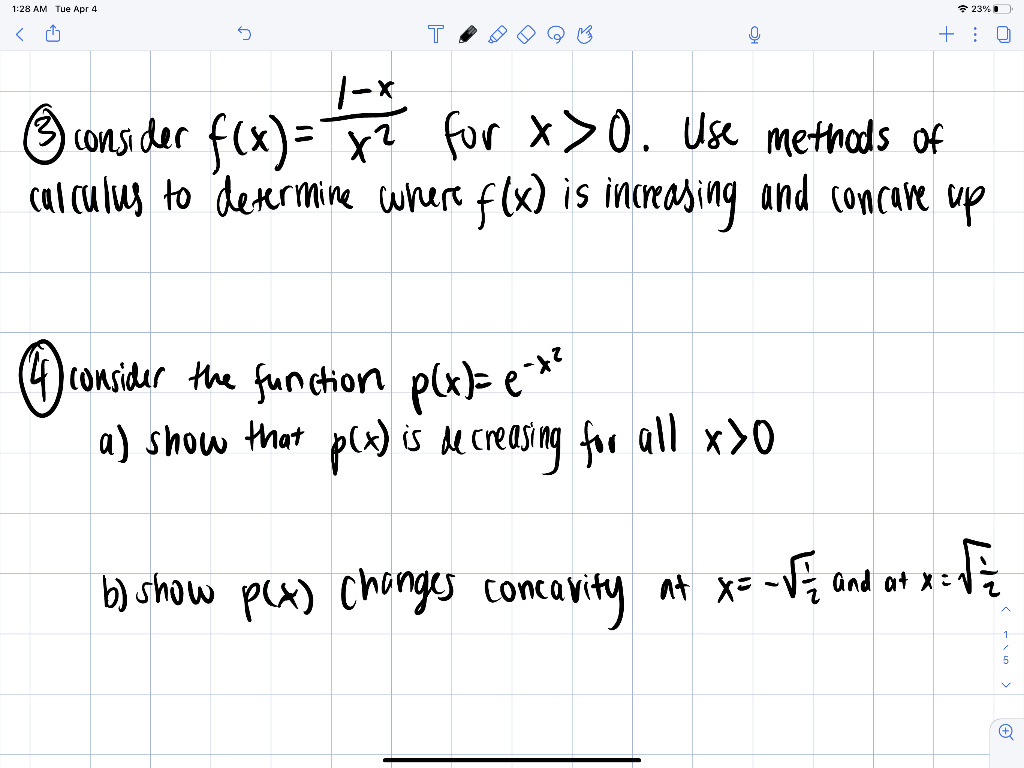 1:28 AM Tue Apr 4 23%
T
③ consider f(x) = (1-x)/x² for x > 0. Use methods of
calculus to determine where f(x) is increasing and concave up
④ consider the function p(x) = e^(-x²)
a) show that p(x) is decreasing for all x>0
b) show p(x) changes concavity at x = -√(1/2) and at x = √(1/2)
1
/
5